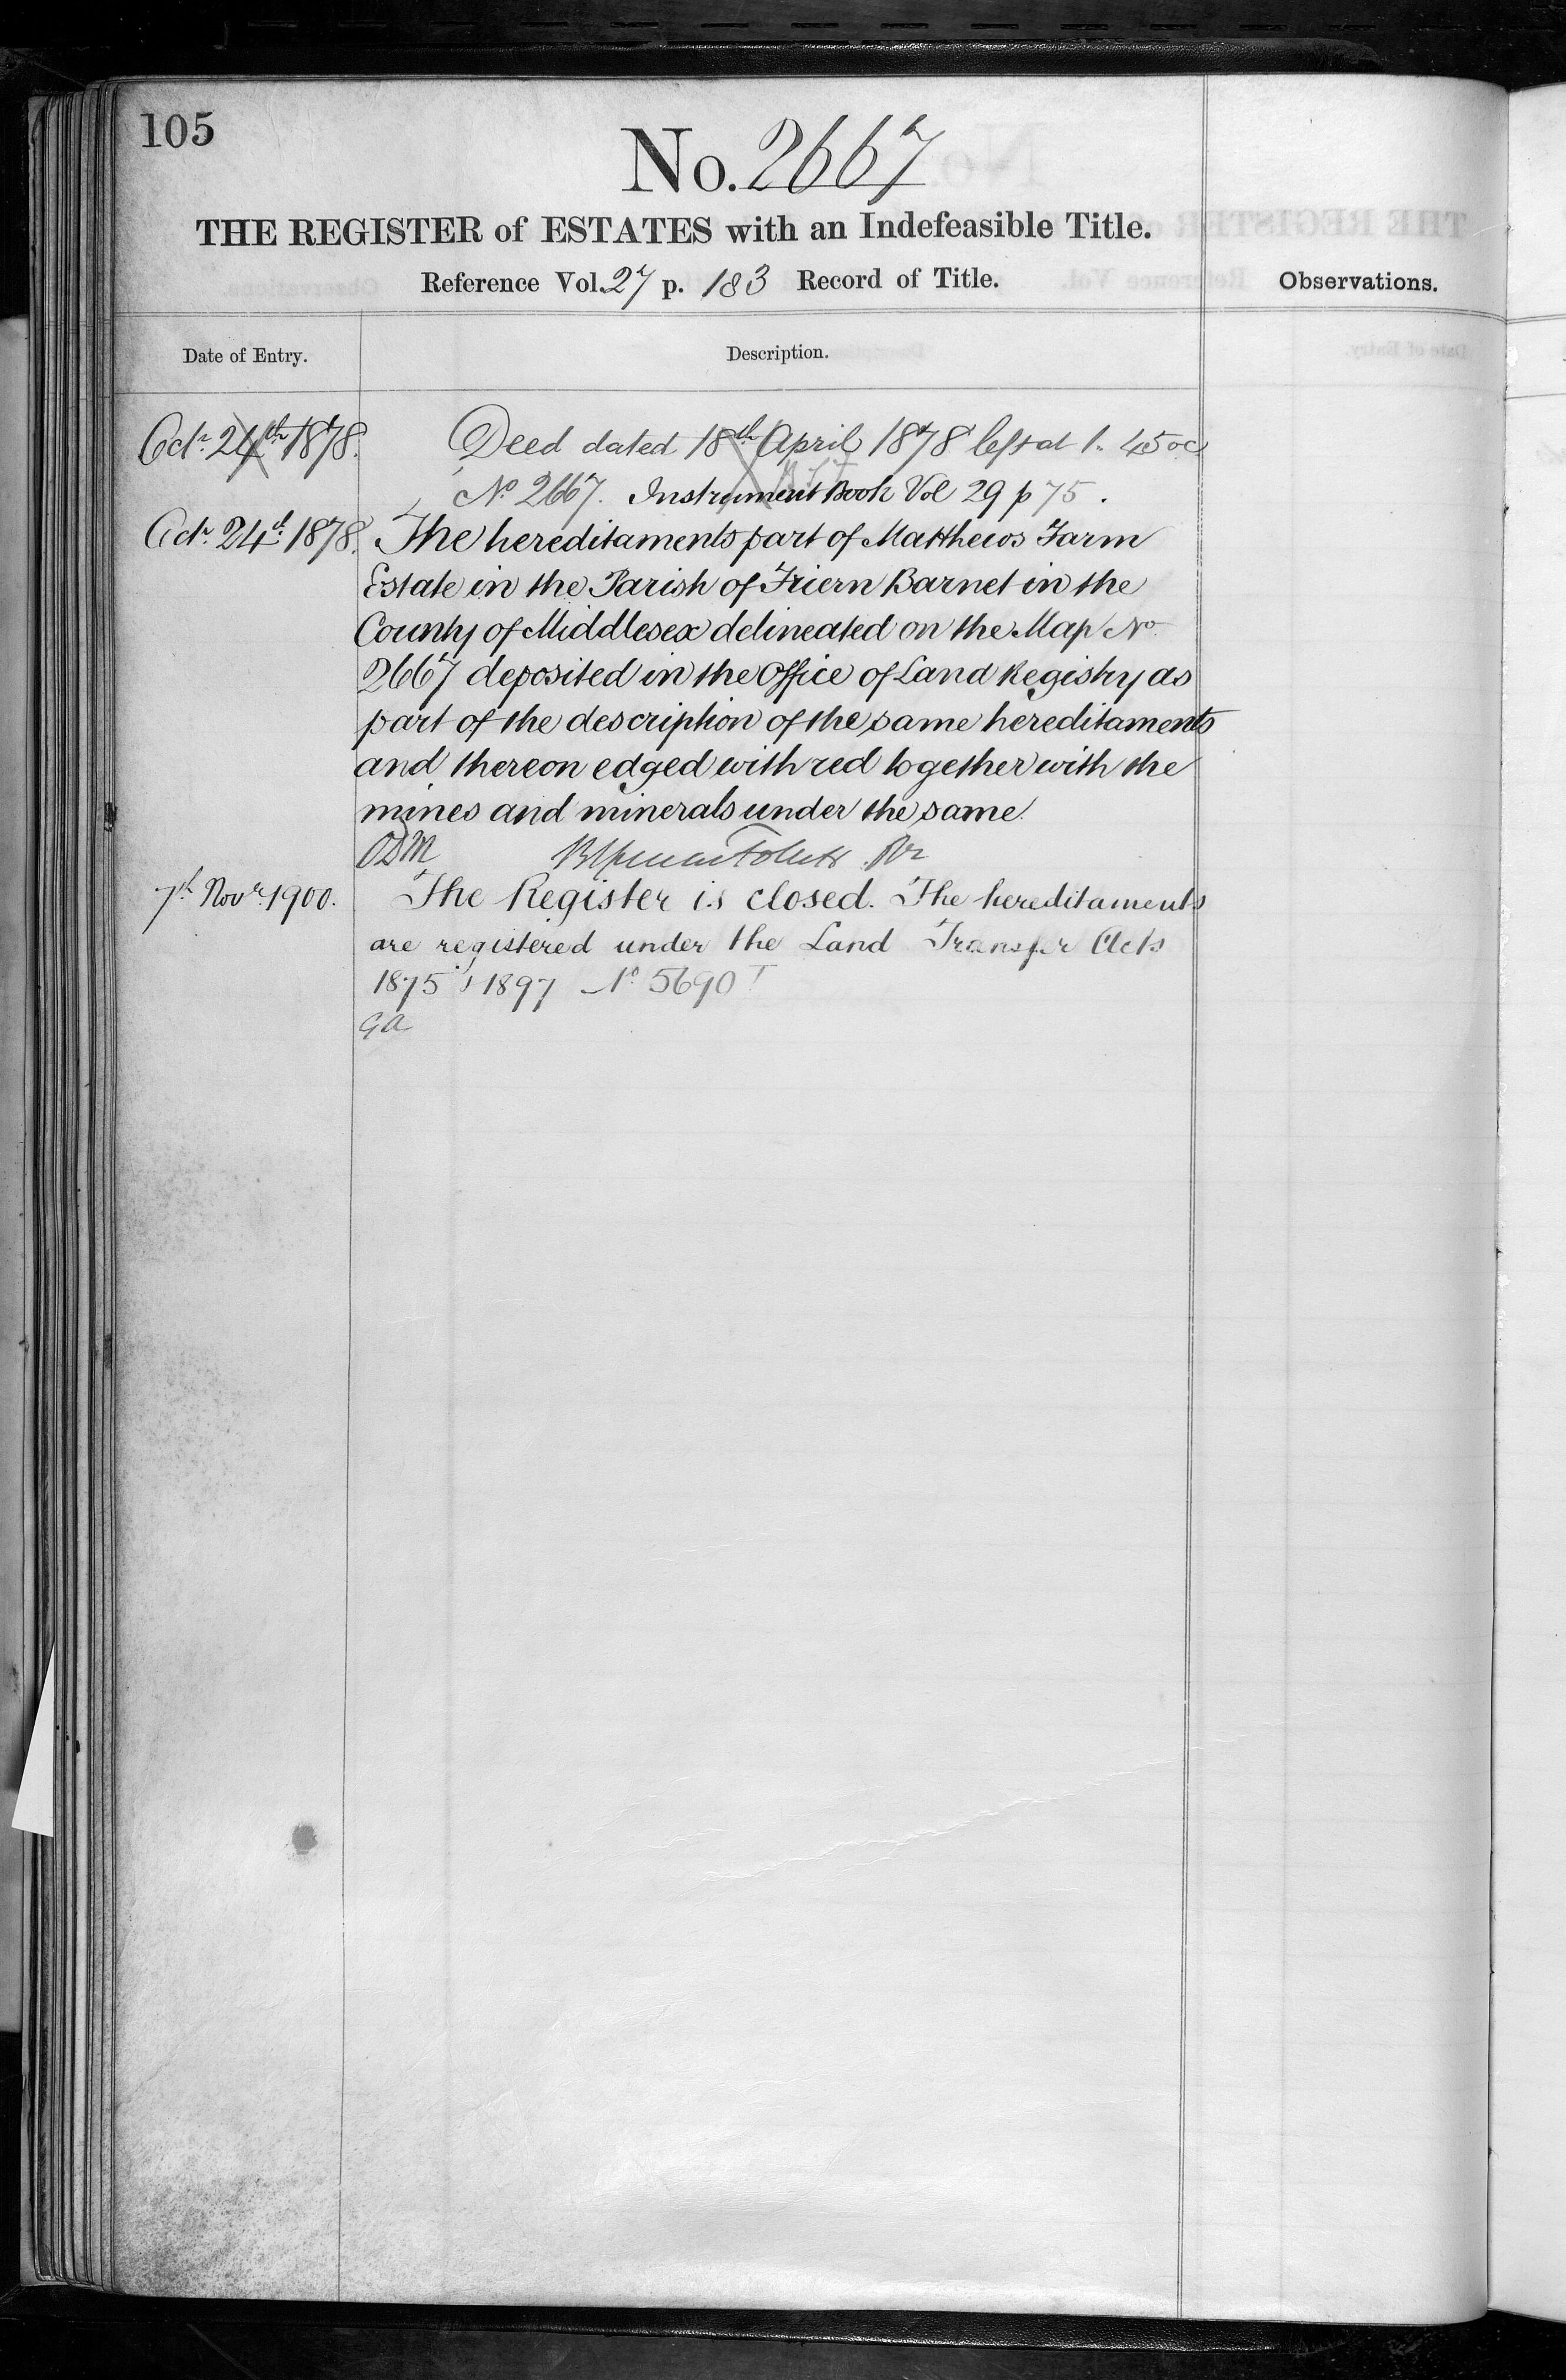 105
No. 2667
THE REGISTER of ESTATES with an Indefeasible Title.
Reference Vol. 27 p. 183 Record of Title.
Observations.
Date of Entry.
Description.
Octr. 24th 1878. Deed dated 18th April 1878 left at 1. 45 oc
No 2667. Instrument Book Vol 29 p 75.
Octr. 24th 1878. The hereditaments part of Matthews Farm
Estate in the Parish of Friern Barnet in the
County of Middlesex delineated on the Map No
2667 deposited in the Office of Land Registry as
part of the description of the same hereditaments
and thereon edged with red together with the
mines and minerals under the same.
ODM
7th Novr. 1900. The Register is closed. The hereditaments
are registered under the Land Transfer Acts
1875 & 1897 No 5690
GA